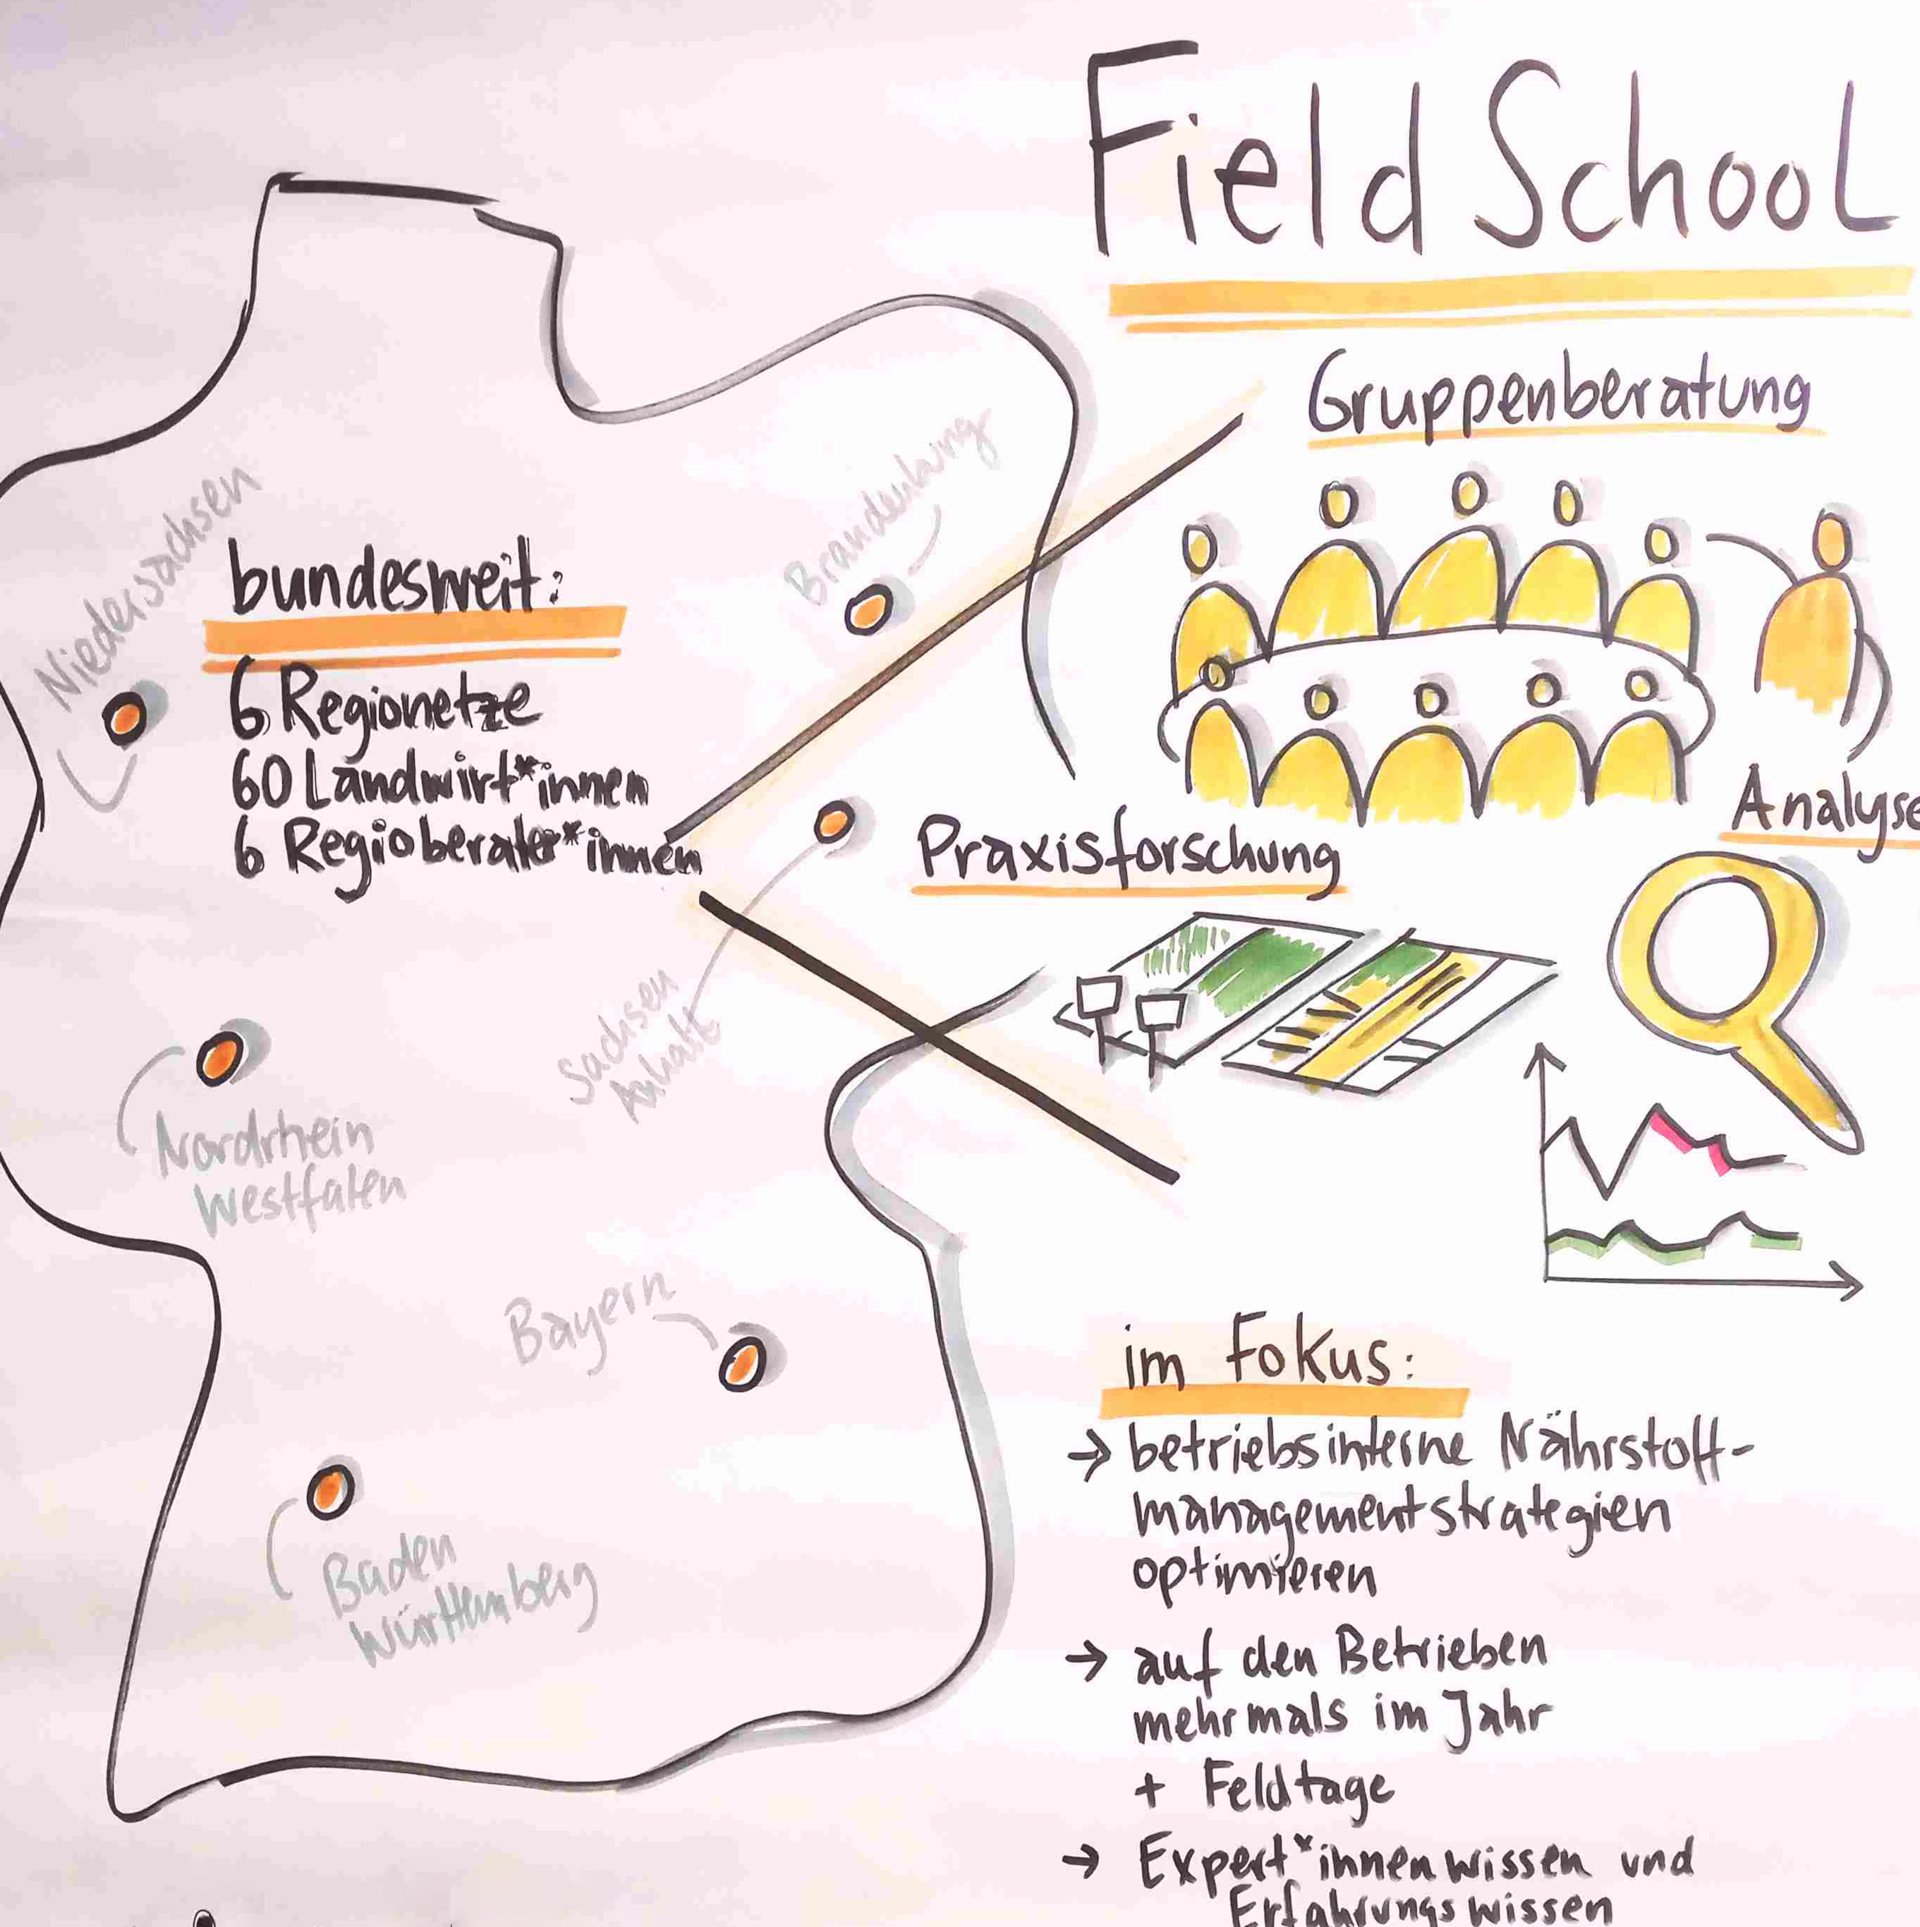 Field School
Gruppenberatung
Brandenburg
Niedersachsen
bundesweit:
6 Regionetze
60 Landwirt*innen
6 Regioberater*innen
Praxisforschung
Analyse
Sachsen
Anhalt
Nordrhein
Westfalen
Bayern
Baden
Württemberg
im Fokus:
→ betriebsinterne Nährstoff-
managementstrategien
optimieren
→ auf den Betrieben
mehrmals im Jahr
+ Feldtage
→ Expert*innenwissen und
Erfahrungswissen